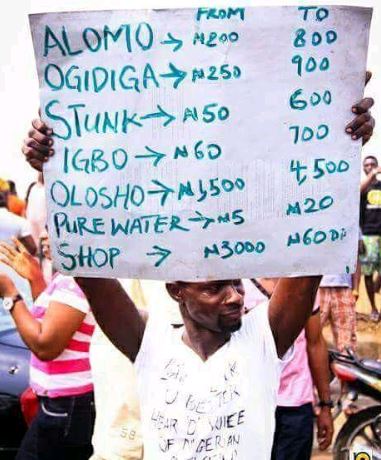 FROM TO
ALOMO → ₦200 800
OGIDIGA → ₦250 900
STUNK → ₦50 600
IGBO → ₦60 700
OLOSHO → ₦1,500 4,500
PURE WATER → ₦5 ₦20
SHOP → ₦3000
U BETTER
HEAR D
OF